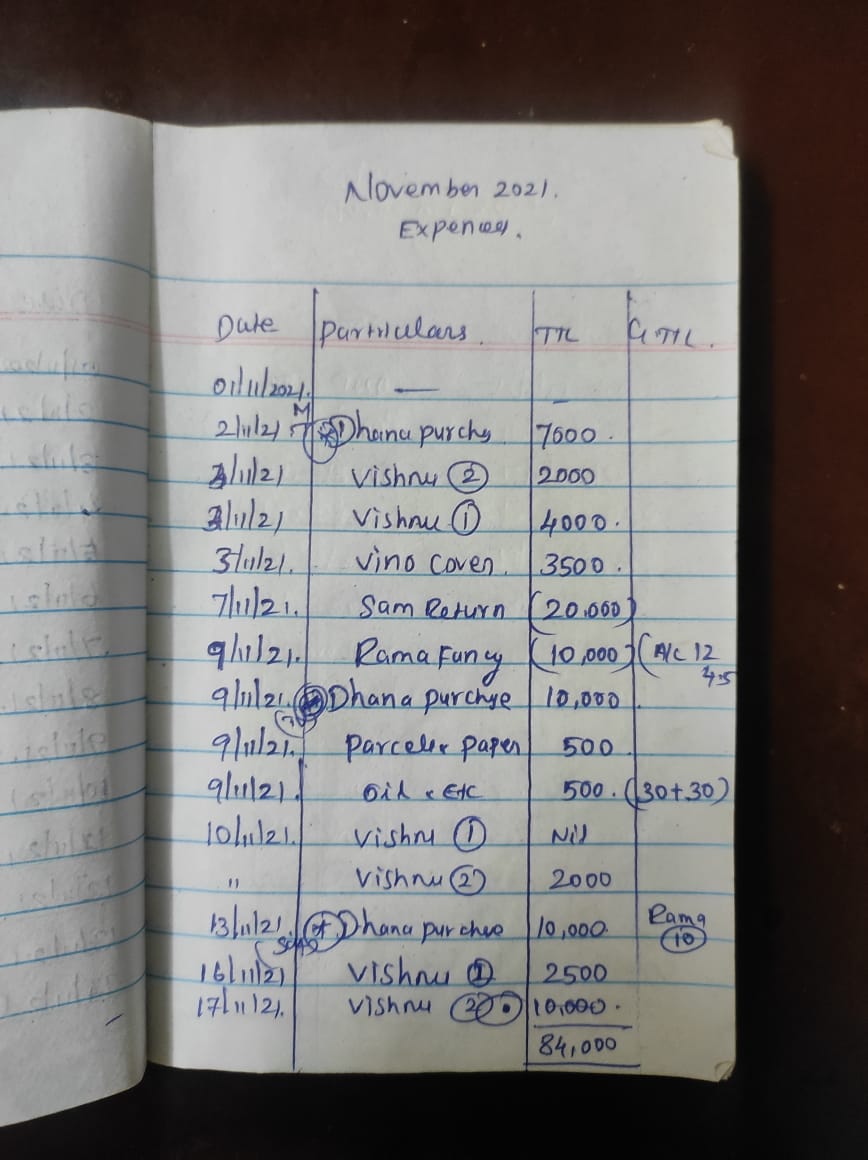 November 2021.
Expences.
Date Particulars. TTL G TTL.
01/11/2021. — –
M
2/11/21 Dhana purchs 7600.
3/11/21 Vishnu 2 2000
3/11/21 Vishnu 1 4000.
3/11/21. Vino cover. 3500.
7/11/21. Sam Return (20,000)
9/11/21. Rama Fancy (10,000) (A/C 12
4.5
9/11/21. Dhana purchse 10,000
9/11/21. parcel & paper 500
9/11/21. oil & Etc 500. (30+30)
10/11/21. Vishnu 1 Nil
" Vishnu 2 2000
13/11/21. Dhana purchse 10,000. Rama
10
16/11/21 Vishnu 1 2500
17/11/21. Vishnu 2 10,000.
84,000